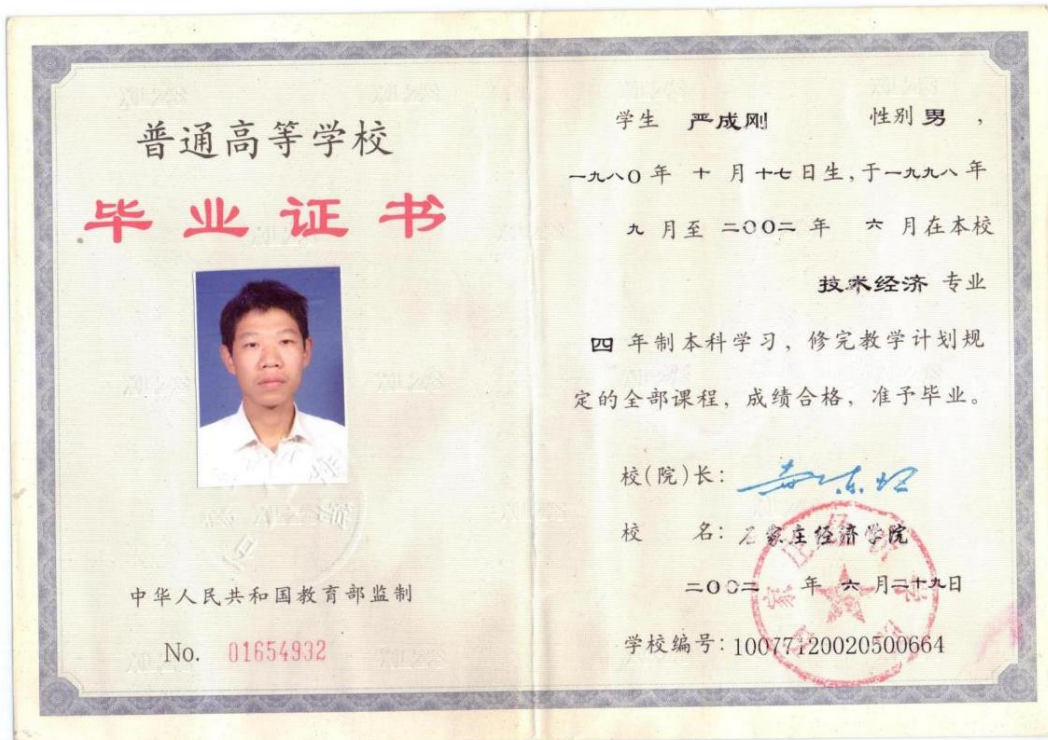 普通高等学校
毕业证书
中华人民共和国教育部监制
No. 01654932
学生 严成刚 性别 男，
一九八〇年 十 月 十七 日生,于一九九八年
九 月至 二〇〇二 年 六 月在本校
技术经济 专业
四 年制本科学习，修完教学计划规
定的全部课程，成绩合格，准予毕业。
校(院)长：
校 名：石家庄经济学院
二〇〇二 年 六 月二十九日
学校编号：10077120020500664